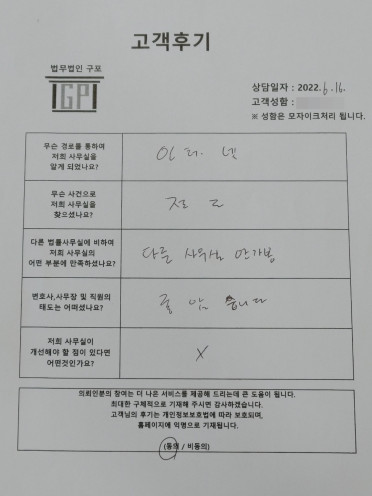 고객후기
법무법인 구포
GP
상담일자 : 2022. 6. 16.
고객성함 :
※ 성함은 모자이크처리 됩니다.
무슨 경로를 통하여
저희 사무실을
알게 되었나요?
인터넷
무슨 사건으로
저희 사무실을
찾으셨나요?
다른 법률사무실에 비하여
저희 사무실의
어떤 부분에 만족하셨나요?
다른 사무실 안가봄
변호사,사무장 및 직원의
태도는 어떠셨나요?
좋았습니다
저희 사무실이
개선해야 할 점이 있다면
어떤것인가요?
X
의뢰인분의 참여는 더 나은 서비스를 제공해 드리는데 큰 도움이 됩니다.
최대한 구체적으로 기재해 주시면 감사하겠습니다.
고객님의 후기는 개인정보보호법에 따라 보호되며,
홈페이지에 익명으로 기재됩니다.
(동의 / 비동의)